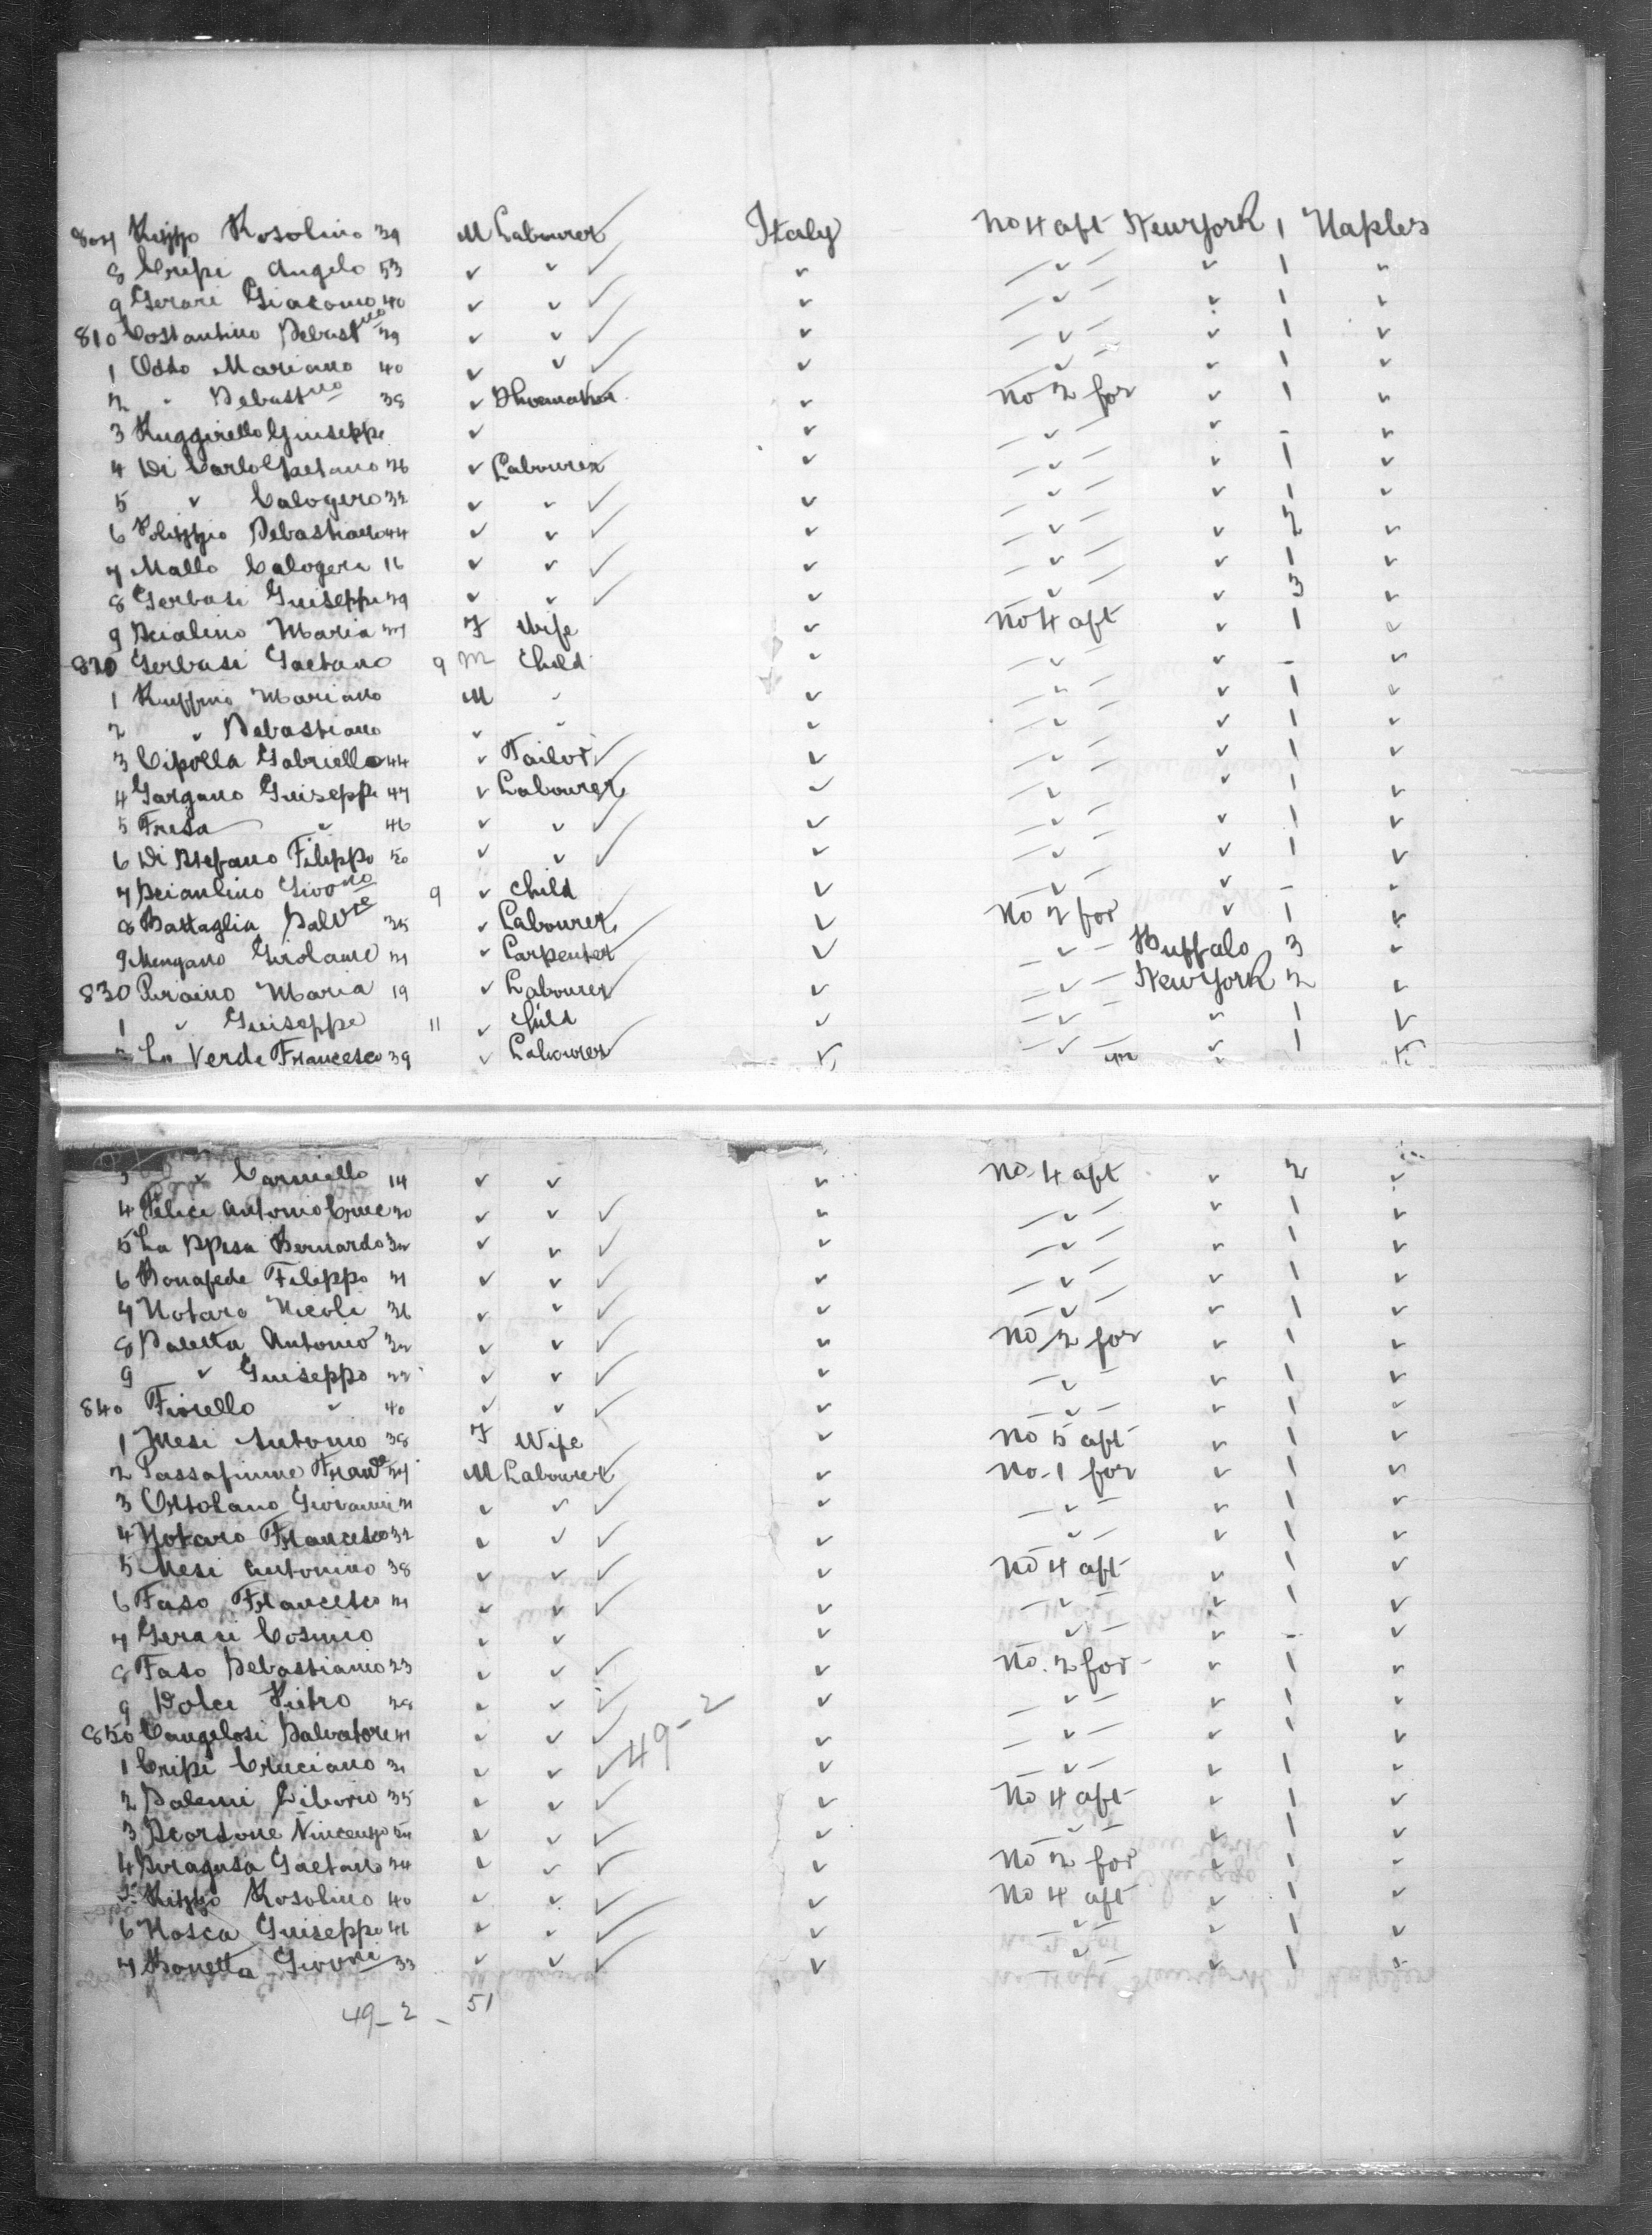 807 Rizzo Rosolino 39 M Labourer Italy No 4 aft New York 1 Naples
8 Cripi Angelo 53 " " " " " 1 "
9 Gerari Giacomo 40 " " " " " 1 "
810 Costantino Sebastno 39 " " " " " 1 "
1 Oddo Mariano 40 " " " " " 1 "
2 " Sebastno 38 " Shoemaker " No 2 for " 1 "
3 Ruggirello Giuseppe " " " " - "
4 Di Carlo Gaetano 26 " Labourer " " " 1 "
5 " Calogero 32 " " " " " 1 "
6 Polizzio Sebastiano 44 " " " " " 2 "
7 Mallo Calogera 16 " " " " " 1 "
8 Gerbasi Guiseppe 39 " " " " " 3 "
9 Scialino Maria 27 F Wife " No 4 aft " 1 "
820 Gerbasi Gaetano 9 M Child " " " - "
1 Ruffino Mariano M " " " " 1 "
2 " Sebastiano " " " " " 1 "
3 Cipolla Gabriello 44 " Tailor " " " 1 "
4 Gargano Guiseppe 47 " Labourer " " " 1 "
5 Fresa " 46 " " " " " 1 "
6 Di Stefano Filippo 50 " " " " " 1 "
7 Scianlino Giovno 9 " Child " " " - "
8 Battaglia Salvre 35 " Labourer " No 2 for " 1 "
9 Mengano Girolamo 21 " Carpenter " " Buffalo 3 "
830 Piraino Maria 19 " Labourer " " New York 2 "
1 " Guiseppe 11 " Child " " " 1 "
La Verde Francesco 39 " Labourer " " " 1 "
3 " Carmello 14 " " " No 4 aft " 2 "
4 Felice Antonio Cruce 20 " " " " " 1 "
5 La Spesa Bernardo 32 " " " " " 1 "
6 Bonafede Filippo 21 " " " " " 1 "
7 Notaro Nicoli 36 " " " " " 1 "
8 Saletta Antonio 32 " " " No 2 for " 1 "
9 " Guiseppe 22 " " " " " 1 "
840 Fiorello " 40 " " " " " 1 "
1 Mesi Antonio 38 F Wife " No 5 aft " 1 "
2 Passafiume Frane 27 M Labourer " No. 1 for " 1 "
3 Ortolano Giovanni 21 " " " " " 1 "
4 Notaro Francesco 32 " " " " " 1 "
5 Mesi Antonino 38 " " " No 4 aft " 1 "
6 Faso Francesco 21 " " " " " 1 "
7 Geraci Cosmio " " " " " - "
8 Faso Sebastiano 23 " " " No. 2 for " 1 "
9 Dolce Pietro 28 " " " " " 1 "
49-2
850 Cangelosi Salvatore 21 " " " " " 1 "
1 Cripi Cruciano 21 " " " " " 1 "
2 Salemi Liborio 35 " " " No 4 aft " 1 "
3 Scorsone Vincenzo 24 " " " " " 1 "
4 Siragusa Gaetano 24 " " " No 2 for " 1 "
5 Rizzo Rosolino 40 " " " No 4 aft " 1 "
6 Mosca Guiseppe 46 " " " " " 1 "
7 Bonetta Giovni 33 " " " " " 1 "
49-2 - 51